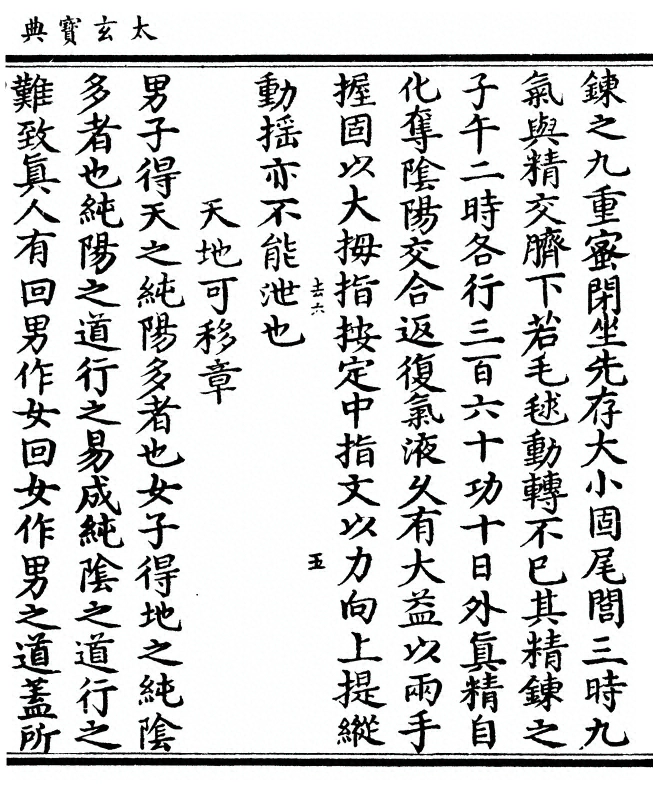 太玄寶典
鍊之九重蜜閉坐先存大小固尾閭三時九
氣與精交臍下若毛毬動轉不已其精鍊之
子午二時各行三百六十功十日外眞精自
化奪陰陽交合返復氣液久有大益以兩手
握固以大拇指按定中指文以力向上提縱
動揺亦不能泄也
去六
五
天地可移章
男子得天之純陽多者也女子得地之純陰
多者也純陽之道行之易成純陰之道行之
難致眞人有回男作女回女作男之道蓋所